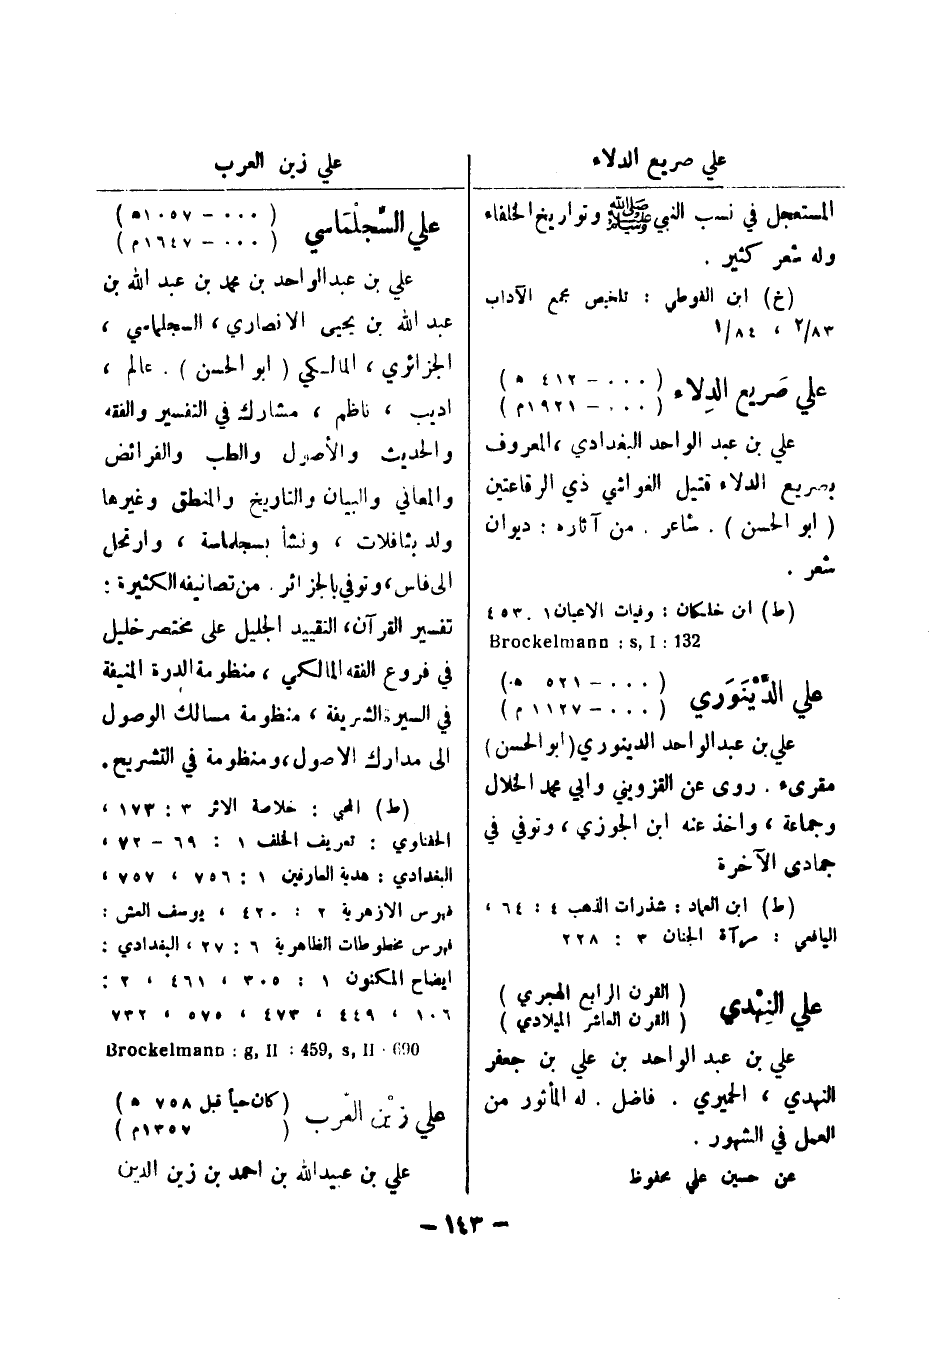 علي صريع الدلاء
المستعجل في نسب النبي ﷺ وتواريخ الخلفاء
وله شعر كثير .
(خ) ابن الفوطي : تلخيص مجمع الآداب
٢/٨٣ ، ١/٨٤
علي صَريع الدِلاء (٠٠٠ – ٤١٢ ه)
(٠٠٠ – ١٩٢١م)
علي بن عبد الواحد البغدادي ،المعروف
بصريع الدلاء قتيل الغواشي ذي الرقاعتين
( ابو الحسن ) . شاعر . من آثاره : ديوان
شعر .
(ط) ابن خلكان : وفيات الاعيان ١ . ٤٥٣
Brockelmann : s, I : 132
علي الدَّيْنَوَري (٠٠٠ – ٥٢١ ه)
(٠٠٠ – ١١٢٧ م)
علي بن عبدالواحد الدينوري(ابوالحسن)
مقرىء . روى عن القزويني وابي محمد الخلال
وجماعة ، واخذ عنه ابن الجوزي ، وتوفي في
جمادى الآخرة
(ط) ابن العماد : شذرات الذهب ٤ : ٦٤ ،
اليافعي : مرآة الجنان ٣ : ٢٢٨
علي النِهْدي ( القرن الرابع الهجري )
( القرن العاشر الميلادي )
علي بن عبد الواحد بن علي بن جعفر
النهدي ، الحميري . فاضل . له المأثور من
العمل في الشهور .
عن حسين علي محفوظ
علي زين العرب
علي السِّجلْمَاسي (٠٠٠ – ١٠٥٧ه)
(٠٠٠ – ١٦٤٧م)
علي بن عبدالواحد بن محمد بن عبد الله بن
عبد الله بن يحيى الانصاري ، السجلماسي ،
الجزائري ، المالكي ( ابو الحسن ) . عالم ،
اديب ، ناظم ، مشارك في التفسير والفقه
والحديث والأصول والطب والفرائض
والمعاني والبيان والتاريخ والمنطق وغيرها
ولد بتافلات ، ونشأ بسجلماسة ، وارتحل
الى فاس ، وتوفي بالجزائر . من تصانيفه الكثيرة :
تفسير القرآن، التقييد الجليل على مختصر خليل
في فروع الفقه المالكي ، منظومة الدرة المنيفة
في السيرة الشريفة ، منظومة مسالك الوصول
الى مدارك الاصول ،ومنظومة في التشريح .
(ط) المحبي : خلاصة الاثر ٣ : ١٧٣ ،
الحفناوي : تعريف الخلف ١ : ٦٩ – ٧٢ ،
البغدادي : هدية العارفين ١ : ٧٥٦ ، ٧٥٧ ،
فهرس الازهرية ٢ : ٤٢٠ ، يوسف العش :
فهرس مخطوطات الظاهرية ٦ : ٢٧ ، البغدادي :
ايضاح المكنون ١ : ٣٠٥ ، ٤٦١ ، ٢ :
١٠٦ ، ٤٤٩ ، ٤٧٣ ، ٥٧٥ ، ٧٣٢
Brockelmann : g, II : 459, s, II · 690
علي زيْن العَرب (كان حياً قبل ٧٥٨ ه)
( ١٣٥٧م)
علي بن عبيدالله بن احمد بن زين الدين
– ١٤٣ –